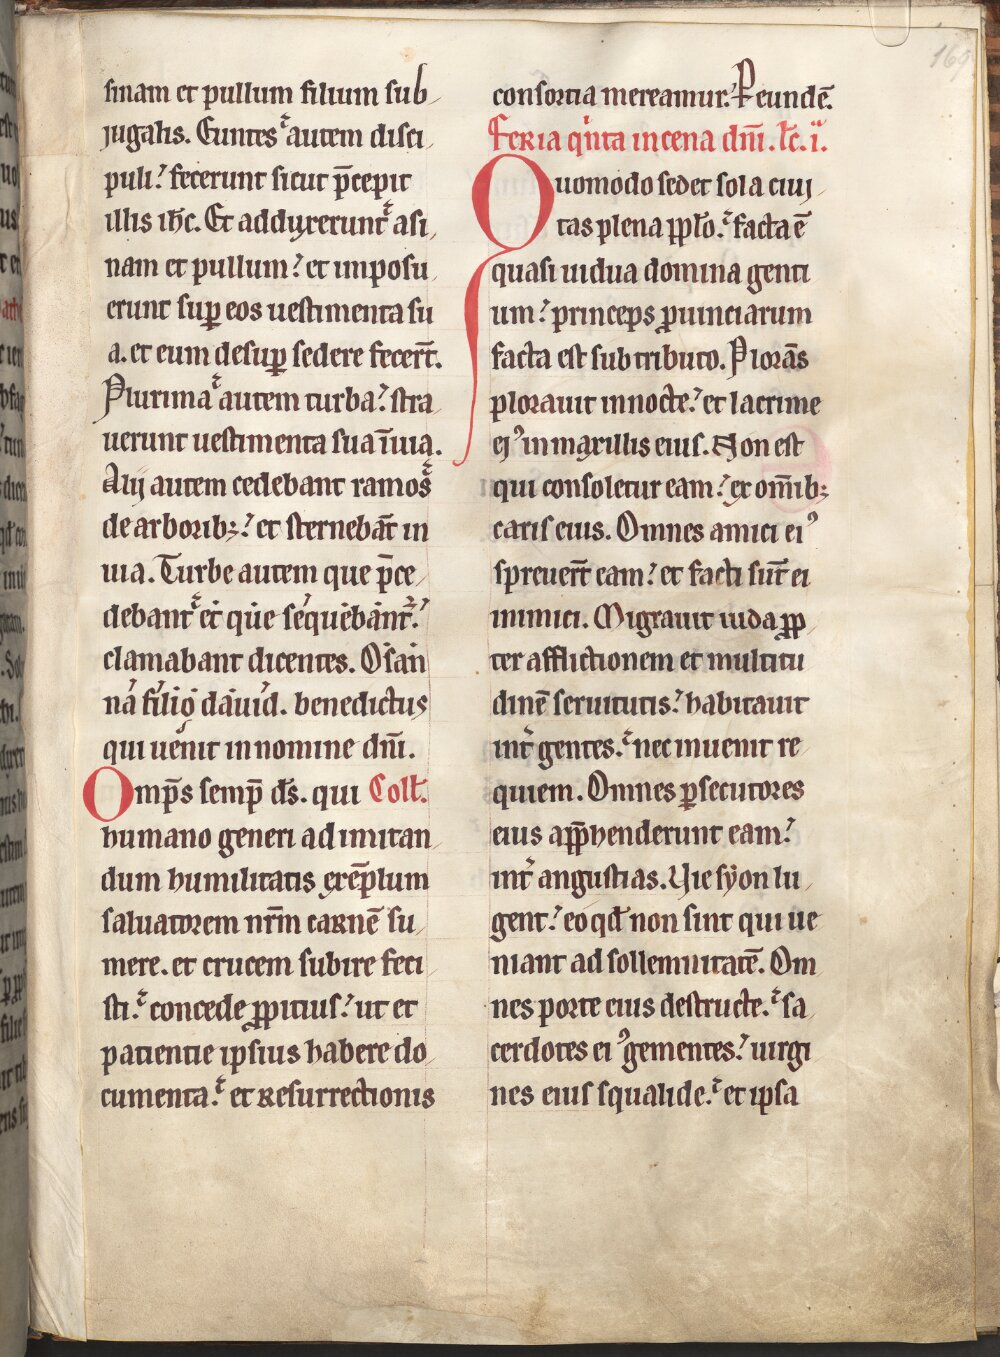 sinam et pullum filium sub
jugalis. Euntes autem disci
puli? fecerunt sicut p̄cepit
illis ih̄c. Et adduxerunt asi
nam et pullum? et imposu
erunt sup̱ eos uestimenta su
a. et eum desup̱ sedere fecer̄t.
Plurima autem turba? stra
uerunt uestimenta sua ī uia.
Alij autem cedebant ramos
de arborib;? et sternebāt in
uia. Turbe autem que p̄ce
debant et que sequebant?
clamabant dicentes. Osan
na filio dauid. benedictus
qui uenit in nomine dn̄i.
Omp̄s semp̄ d̄s. qui Coll̄.
humano generi ad imitan
dum humilitatis exēplum
saluatorem nr̄m carnē su
mere. et crucem subire feci
sti. concede ꝓpitius? ut et
patientie ipsius habere do
cumenta. et resurrectionis
169
consortia mereamur. P eundē.
Feria qi̇nta in cena dn̄i. lc̄. i.
Quomodo sedet sola ciui
tas plena ppl̄o. facta ē
quasi uidua domina genti
um? princeps ꝓuinciarum
facta est sub tributo. Plorās
plorauit in nocte? et lacrime
ejꝰ in maxillis eius. Non est
qui consoletur eam? ex om̄ib;
caris eius. Omnes amici eiꝰ
spreuer̄t eam? et facti sūt ei
inimici. Migrauit iuda ꝓp
ter afflictionem et multitu
dinē seruitutis? habitauit
int̓ gentes. nec inuenit re
quiem. Omnes p̱secutores
eius app̄henderunt eam?
int̓ angustias. Uie syon lu
gent? eo qd̄ non sint qui ue
niant ad sollemnitatē. Om
nes porte eius destructe. sa
cerdotes eiꝰ gementes? uirgi
nes eius squalide. et ipsa